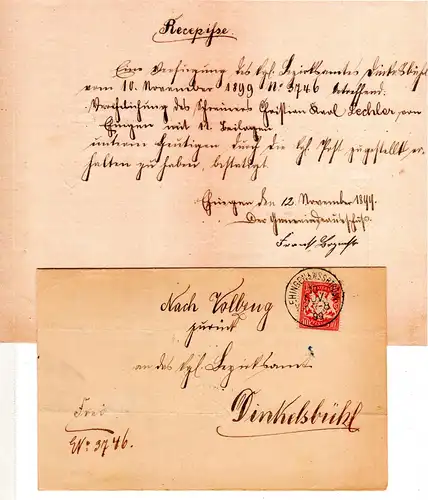 Recepisse.
Eine Verfügung des kgl. Bezirksamtes Dinkelsbühl
vom 10. November 1899 No 3746 betreffend:
Verehelichung des Schreiners Christian Karl Lechler, von
Ehingen mit 11 Beilagen
unterm Heutigen durch die kgl. Post zugestellt er-
halten zu haben, bestätigt.
Ehingen den 12. November 1899.
Der Gemeindeausschuß.
Nach Vollzug
zurück
an das kgl. Bezirksamt
Dinkelsbühl
Frei
No 3746.
10